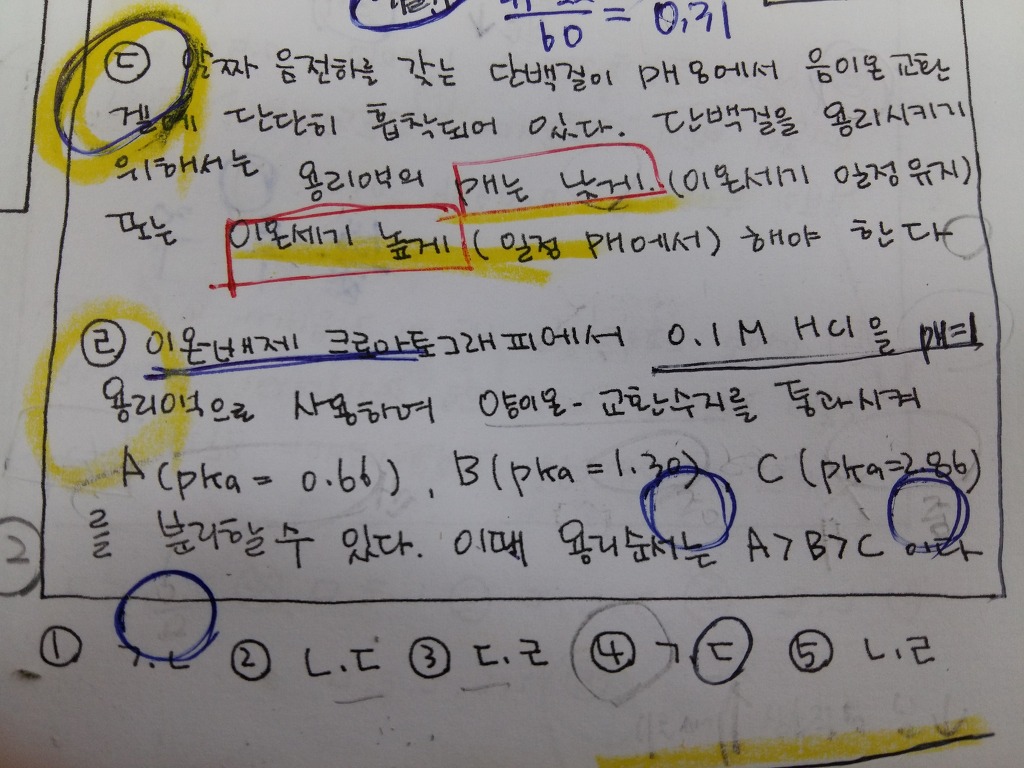 60 = 0.31
ㄷ 알짜 음전하를 갖는 단백질이 pH 8에서 음이온교환
겔에 단단히 흡착되어 있다. 단백질을 용리시키기
위해서는 용리액의 pH는 낮게. (이온세기 일정유지)
또는 이온세기 높게 (일정 pH에서) 해야 한다
ㄹ 이온배제 크로마토그래피에서 0.1M HCl을 pH=1
용리액으로 사용하여 양이온-교환수지를 통과시켜
A (pka = 0.66), B (pka = 1.30) C (pka=2.86)
를 분리할 수 있다. 이때 용리순서는 A > B > C 이다
2
① ㄱ.ㄴ ② ㄴ.ㄷ ③ ㄷ.ㄹ ④ ㄱ.ㄷ ⑤ ㄴ.ㄹ